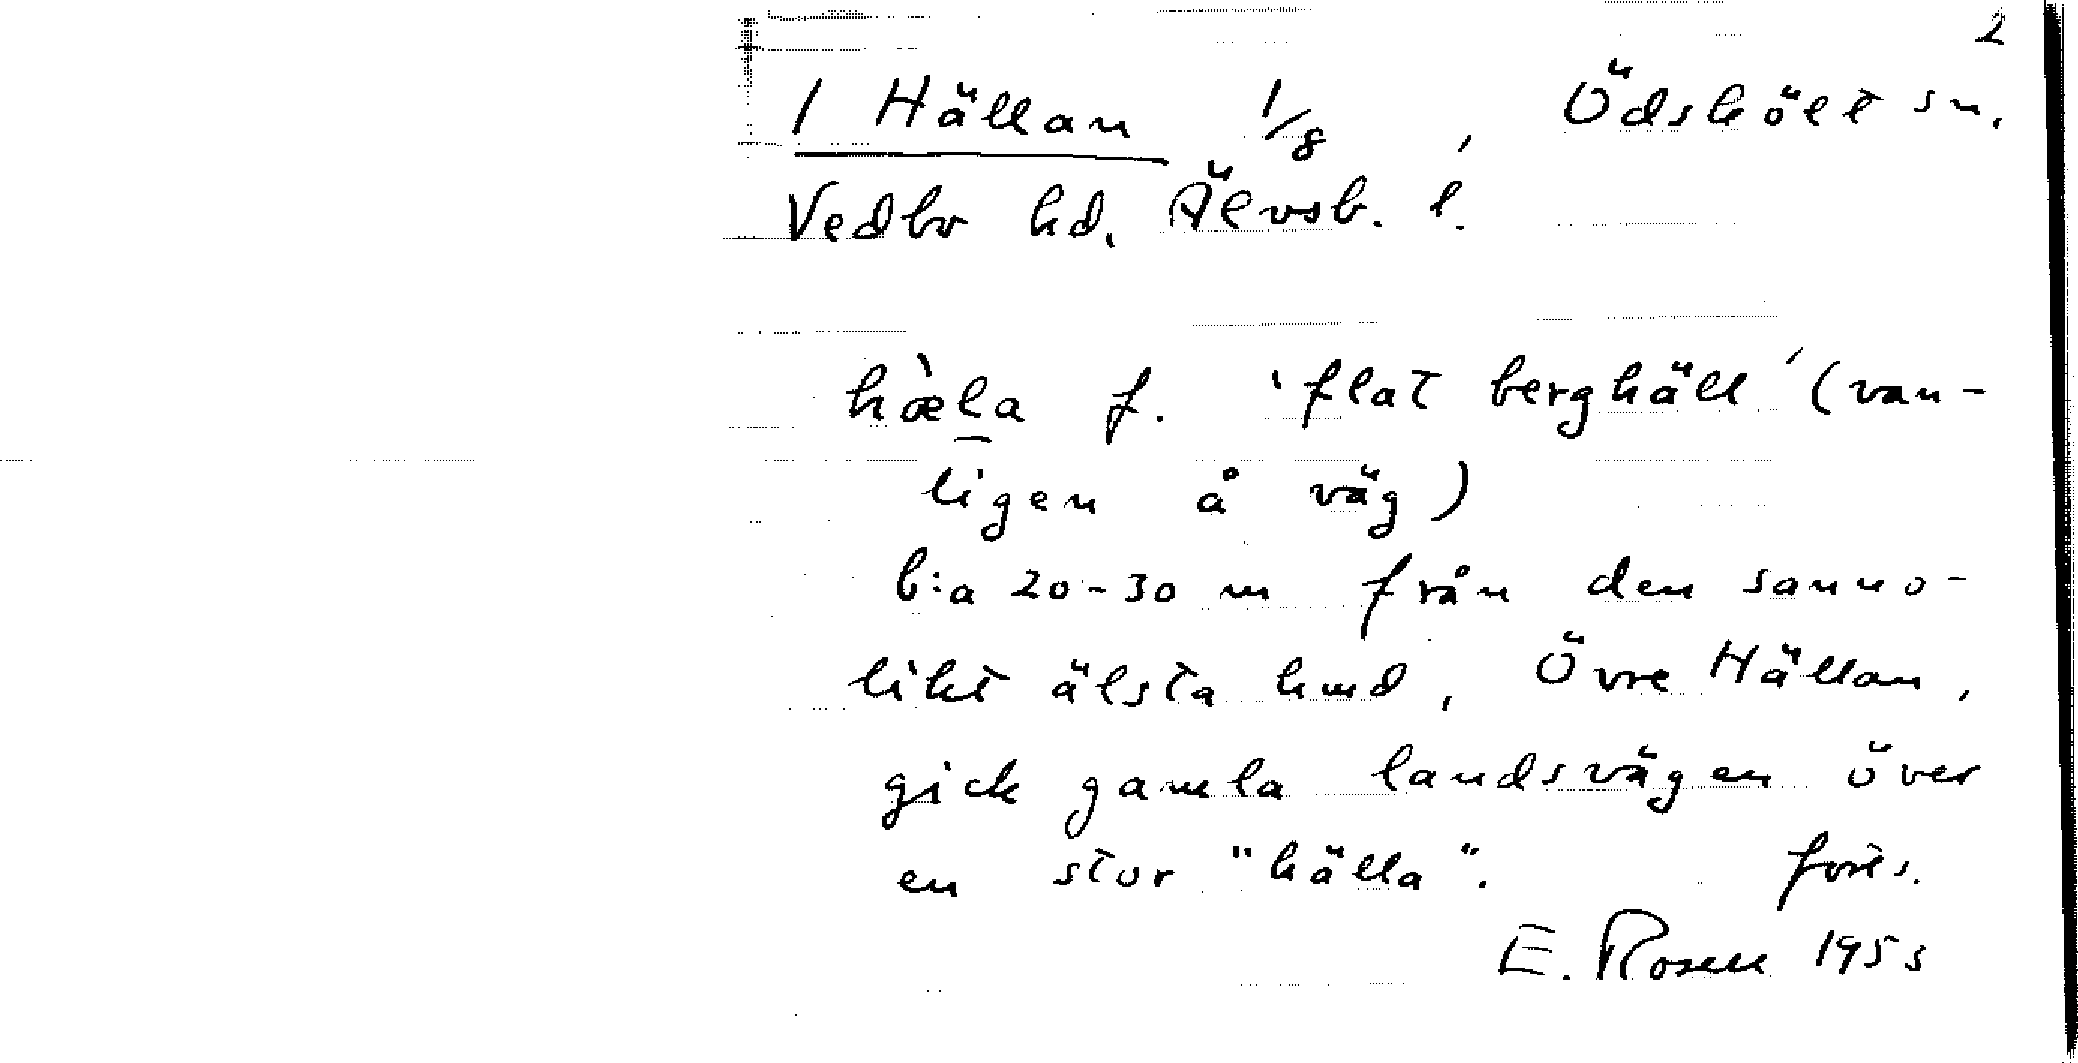 2
1 Hällan 1/8, Ödskölt sn.
Vedbo hd. Älvsb. l.
hæ̀l̲a f. 'flat berghäll' (van-
ligen å väg)
b:a 20-30 m från den sanno-
likt älsta hmd, Övre Hällan,
gick gamla landsvägen över
en stor "hälla". forts.
E. Rosell 1955